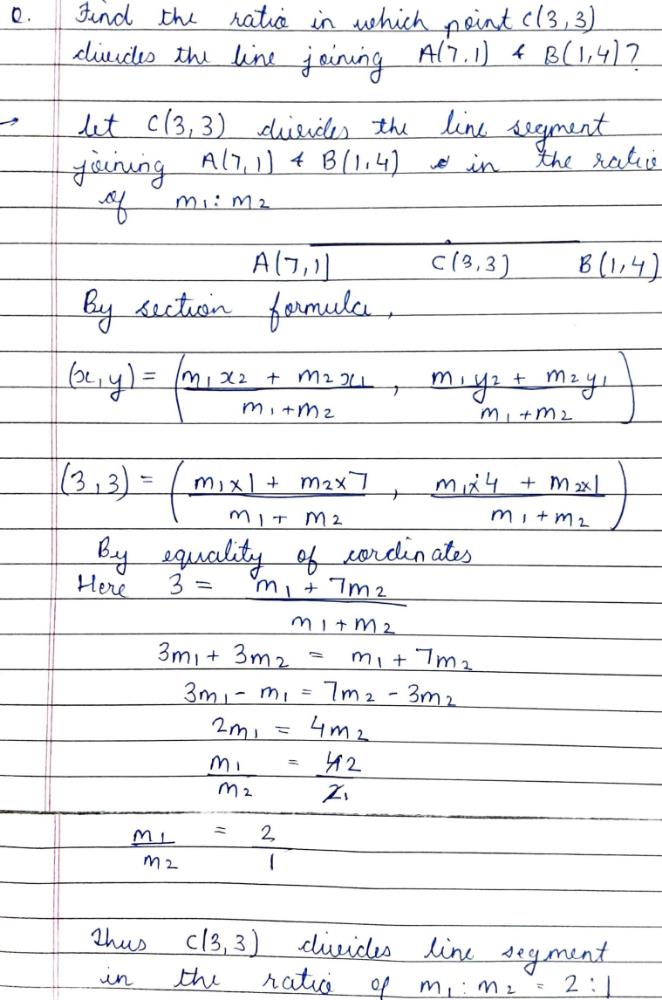 Q. Find the ratio in which point C(3,3)
divides the line joining A(7,1) & B(1,4)?
→ let C(3,3) divides the line segment
joining A(7,1) & B(1,4) in the ratio
of m₁:m₂
A(7,1] C(3,3) B(1,4)
By section formula,
(x,y) = (m₁x₂ + m₂x₁ / m₁+m₂ , m₁y₂ + m₂y₁ / m₁+m₂)
(3,3) = (m₁x1 + m₂x7 / m₁+m₂ , m₁x4 + m₂x1 / m₁+m₂)
By equality of cordinates
Here 3 = m₁ + 7m₂ / m₁+m₂
3m₁ + 3m₂ = m₁ + 7m₂
3m₁ - m₁ = 7m₂ - 3m₂
2m₁ = 4m₂
m₁ / m₂ = 4 2 / 2 1
m₁ / m₂ = 2 / 1
Thus C(3,3) divides line segment
in the ratio of m₁:m₂ = 2:1